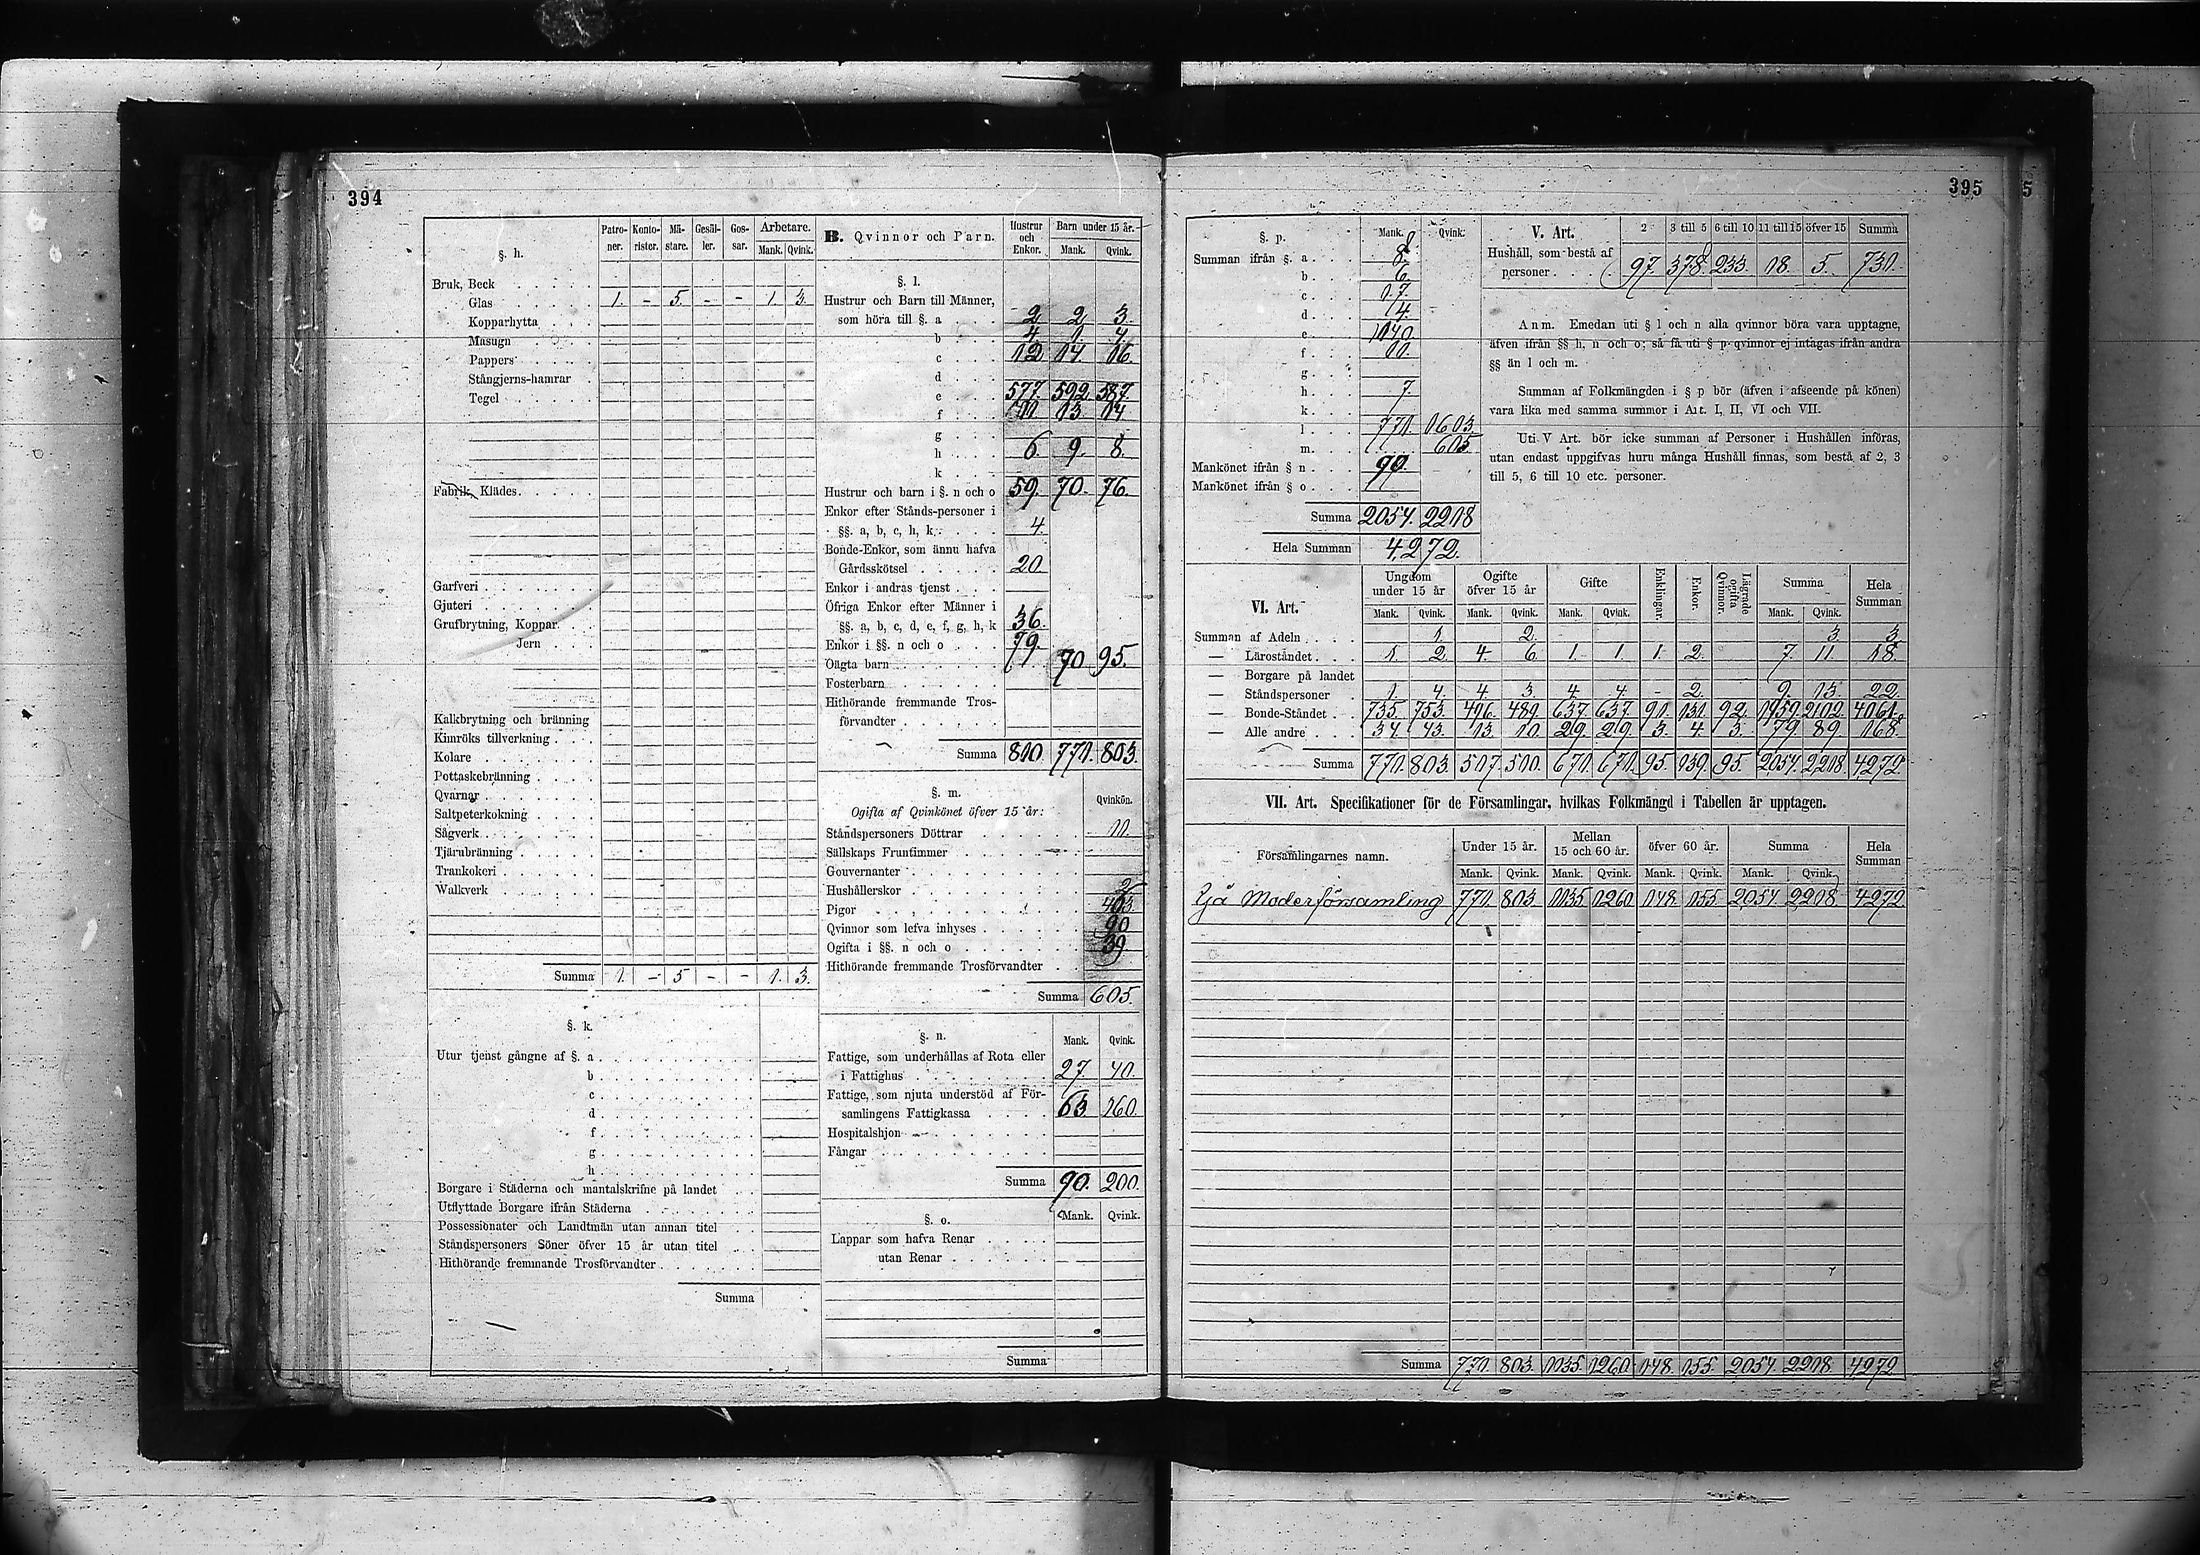 394
§. h.
Patro-ner. Konto-rister. Mä-stare. Gesäl-ler. Gos-sar. Arbetare. Mank. Qvink.
Bruk, Beck
Glas 1. – 5. – – 1. 3.
Kopparhytta
Masugn
Pappers
Stångjerns-hamrar
Tegel
Fabrik, Klädes
Garfveri
Gjuteri
Grufbrytning, Koppar
Jern
Kalkbrytning och bränning
Kimröks tillverkning
Kolare
Pottaskebränning
Qvarnar
Saltpeterkokning
Sågverk
Tjärubränning
Trankokeri
Walkverk
Summa 1. – 5 – – 1. 3.
§. k.
Utur tjenst gångne af §. a
b
c
d
f
g
h
Borgare i Städerna och mantalskrifne på landet
Utflyttade Borgare ifrån Städerna
Possessionater och Landtmän utan annan titel
Ståndspersoners Söner öfver 15 år utan titel
Hithörande fremmande Trosförvandter
Summa
B. Qvinnor och Barn. Hustrur och Enkor. Barn under 15 år. Mank. Qvink.
§. l.
Hustrur och Barn till Männer,
som höra till §. a 2 2 3.
b 4 1. 4.
c 12 14 16.
d
e 577. 592 587.
f 11 13 14
g
h 6. 9. 8.
k
Hustrur och barn i §. n och o 59. 70. 76.
Enkor efter Stånds-personer i
§§. a, b, c, h, k 4.
Bonde-Enkor, som ännu hafva
Gårdsskötsel 20.
Enkor i andras tjenst
Öfriga Enkor efter Männer i
§§. a, b, c, d, e, f, g, h, k 36.
Enkor i §§. n och o 79.
Oägta barn 70 95.
Fosterbarn
Hithörande fremmande Tros-
förvandter
Summa 810 771. 803.
§. m.
Ogifta af Qvinkönet öfver 15 år: Qvinkön.
Ståndspersoners Döttrar 11.
Sällskaps Fruntimmer
Gouvernanter
Hushållerskor 2
Pigor 463.
Qvinnor som lefva inhyses 90
Ogifta i §§. n och o 39.
Hithörande fremmande Trosförvandter
Summa 605.
§. n. Mank. Qvink.
Fattige, som underhållas af Rota eller
i Fattighus 27. 40.
Fattige, som njuta understöd af För-
samlingens Fattigkassa 63. 160.
Hospitalshjon
Fångar
Summa 90. 200.
§. o. Mank. Qvink.
Lappar som hafva Renar
utan Renar
Summa
395
5
§. p. Mank. Qvink.
Summan ifrån §. a 8.
b 6.
c 17.
d 14.
e 1140.
f 11.
g
h 7.
k
l 771. 1603.
m. 605
Mankönet ifrån § n 90.
Mankönet ifrån § o
Summa 2054. 2218
Hela Summan 4,272.
V. Art. 2 3 till 5 6 till 10 11 till 15 öfver 15 Summa
Hushåll, som bestå af
personer 97. 378. 233. 18. 5. 731.
Anm. Emedan uti § l och n alla qvinnor böra vara upptagne,
äfven ifrån §§ h, n och o; så få uti § p qvinnor ej intagas ifrån andra
§§ än l och m.
Summan af Folkmängden i § p bör (äfven i afseende på könen)
vara lika med samma summor i Art. I, II, VI och VII.
Uti V Art. bör icke summan af Personer i Hushållen införas,
utan endast uppgifvas huru många Hushåll finnas, som bestå af 2, 3
till 5, 6 till 10 etc. personer.
VI. Art. Ungdom under 15 år Ogifte öfver 15 år Gifte Enklingar. Enkor. Lägrade ogifta Qvinnor. Summa Hela Summan
Mank. Qvink. Mank. Qvink. Mank. Qvink. Mank. Qvink.
Summan af Adeln 1. 2. 3. 3.
— Läroståndet 1. 2. 4. 6. 1. 1. 1. 2. 7. 11. 18.
— Borgare på landet
— Ståndspersoner 1. 4. 4. 3. 4. 4. – 2. 9. 13. 22.
— Bonde-Ståndet 735. 753. 496. 489. 637. 637. 91. 131. 92. 1959. 2102. 4061.
— Alle andre 34. 43. 13. 10. 29. 29. 3. 4. 3. 79. 89. 168.
Summa 771. 803. 517. 510. 671. 671. 95. 139. 95. 2054. 2218. 4272
VII. Art. Specifikationer för de Församlingar, hvilkas Folkmängd i Tabellen är upptagen.
Församlingarnes namn. Under 15 år. Mellan 15 och 60 år. öfver 60 år. Summa Hela Summan
Mank. Qvink. Mank. Qvink. Mank. Qvink. Mank. Qvink.
Moderförsamling 771. 803. 1135 1260 148. 155. 2054. 2218. 4272
Summa 771. 803. 1135. 1260. 148. 155. 2054. 2218. 4272